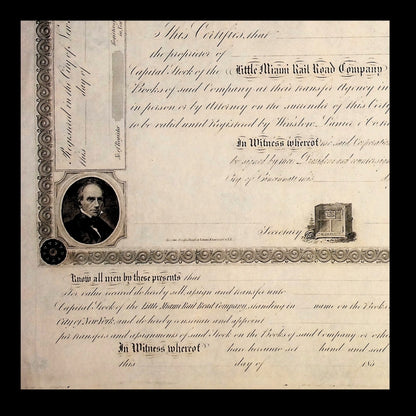 This Certifies that
the proprietor of
Capital Stock of the Little Miami Rail Road Company
Books of said Company at their transfer Agency in
in person or by Attorney on the surrender of this Certi
to be valid until Registered by Winslow, Lanier & Co
In Witness whereof the said Corporation
be signed by their President and countersigned
City of Cincinnati this
Secretary
Registered in the City of New
this day of
No. of Register
Know all men by these presents that
for value received do hereby sell assign and transfer unto
Capital Stock of the Little Miami Rail Road Company, standing in name on the Books
City of New York, and do hereby constitute and appoint
per transfers and assignments of said Stock on the Books of said Company or other
In Witness whereof have hereunto set hand and seal
this day of 185